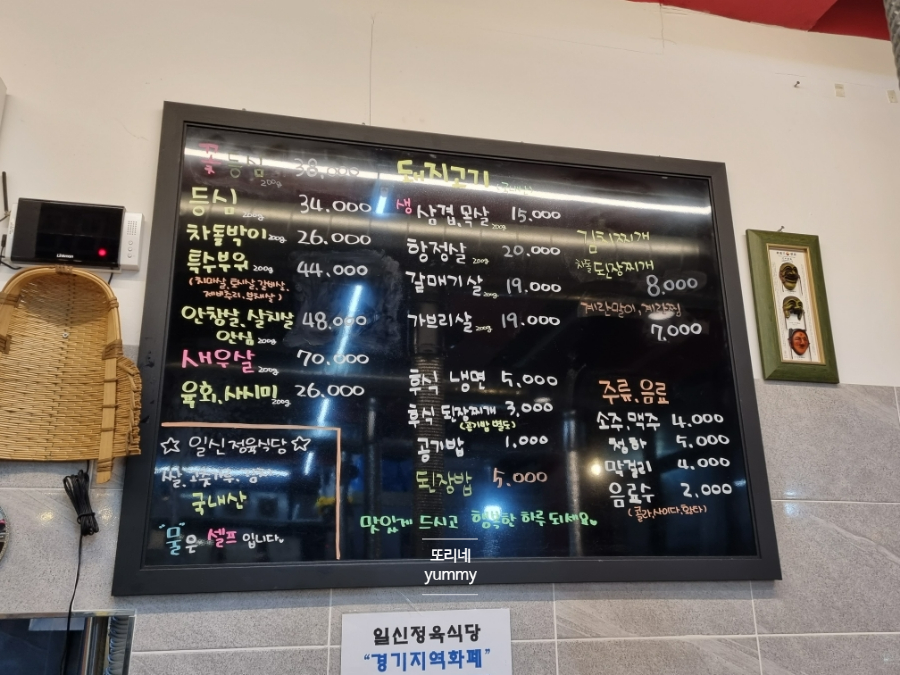 꽃등심 200g 38,000
등심 200g 34,000
차돌박이 200g 26,000
특수부위 200g 44,000
안창살, 살치살 48,000
안심 200g
새우살 70,000
육회, 사시미 200g 26,000
☆ 일신정육식당 ☆
쌀, 고춧가루,
국내산
"물"은 셀프 입니다.
돼지고기
생 삼겹, 목살 200g 15,000
항정살 200g 20,000
갈매기살 200g 19,000
가브리살 200g 19,000
후식 냉면 5,000
후식 된장찌개 3,000
(공기밥 별도)
공기밥 1,000
된장밥 5,000
맛있게 드시고 행복한 하루 되세요
김치찌개
차돌 된장찌개
8,000
계란말이, 계란찜
7,000
주류, 음료
소주, 맥주 4,000
청하 5,000
막걸리 4,000
음료수 2,000
(콜라, 사이다, 환타)
또리네
yummy
일신정육식당
"경기지역화폐"